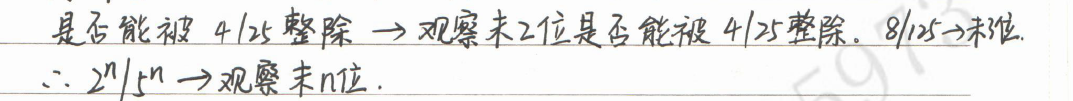 是否能被 4/25 整除 → 观察末2位是否能被 4/25 整除. 8/125→末3位.
∴ 2ⁿ/5ⁿ → 观察末n位.